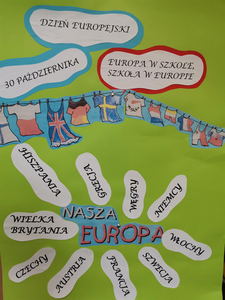 DZIEŃ EUROPEJSKI
30 PAŹDZIERNIKA
EUROPA W SZKOLE,
SZKOŁA W EUROPIE
HISZPANIA
GRECJA
WĘGRY
NIEMCY
WIELKA
BRYTANIA
NASZA
EUROPA
WŁOCHY
CZECHY
AUSTRIA
FRANCJA
SZWECJA